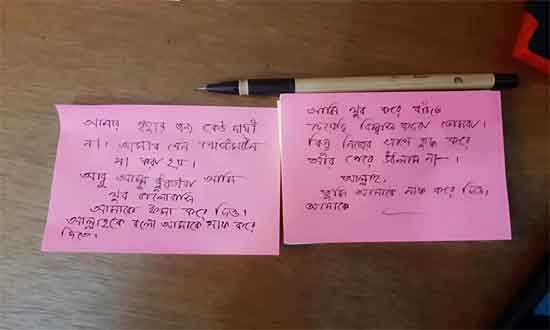 আমার মৃত্যুর জন্য কেউ দায়ী
না। আমার যেন পোস্টমর্টেম
না করা হয়।
আবু আম্মু তোমাদের আমি
খুব ভালোবাসি
আমাকে ক্ষমা করে দিও।
আল্লাহকে বলো আমাকে মাফ করে
দিতে।
আমি খুব করে বাঁচতে
চেয়েছি বিশ্বাস করো তোমরা।
কিন্তু নিজের সাথে যুদ্ধ করে
আর পেরে উঠলাম না।
আল্লাহ,
তুমি আমাকে মাফ করে দিও,
আমাকে